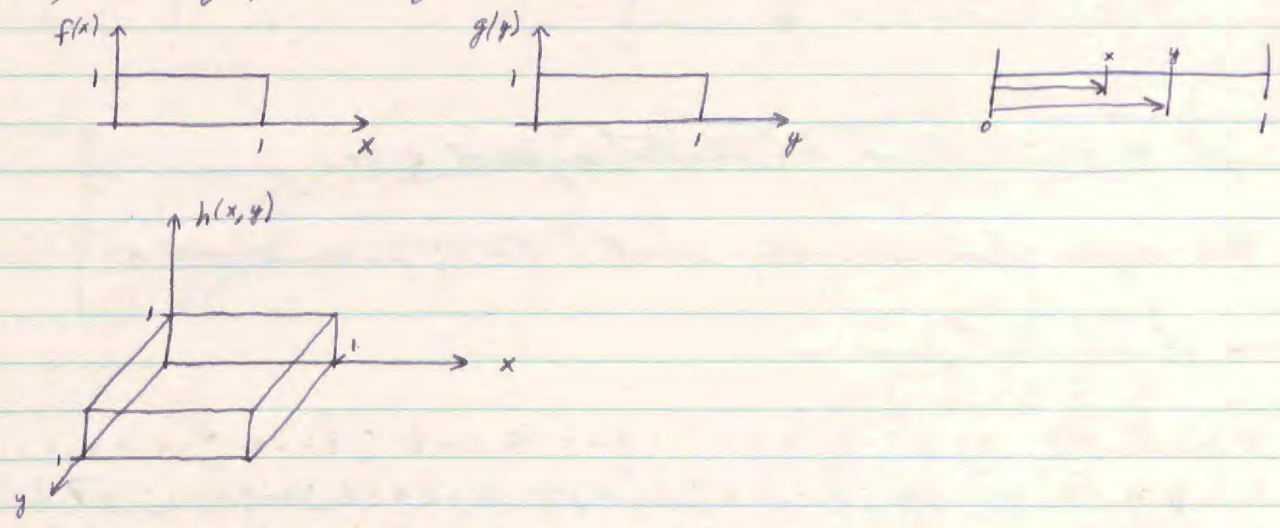 f(x)
1
1
x
g(y)
1
1
y
x y
0
1
h(x,y)
1
1
x
1
y